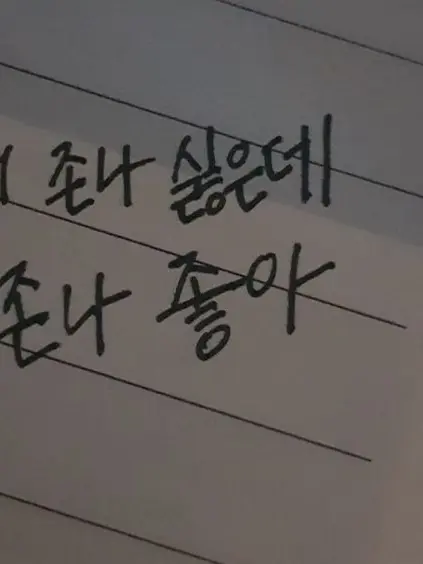 존나 싫은데
존나 좋아